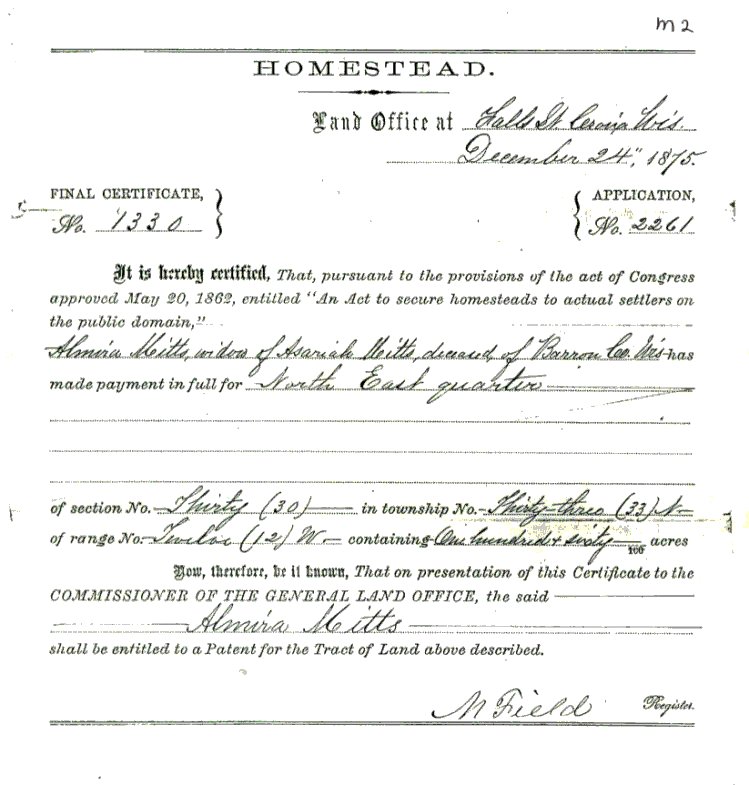 M2
HOMESTEAD.
Land Office at Falls St. Croix Wis.
December 24", 1875.
FINAL CERTIFICATE,
No. 1330
APPLICATION,
No. 2261
It is hereby certified, That, pursuant to the provisions of the act of Congress
approved May 20, 1862, entitled "An Act to secure homesteads to actual settlers on
the public domain,"
Almira Mitts, widow of Asariah Mitts, deceased, of Barron Co. Wis has
made payment in full for North East quarter
of section No. Thirty (30) in township No. Thirty-three (33) N
of range No. Twelve (12) W containing One hundred & sixty /100 acres
Now, therefore, be it known, That on presentation of this Certificate to the
COMMISSIONER OF THE GENERAL LAND OFFICE, the said
Almira Mitts
shall be entitled to a Patent for the Tract of Land above described.
M Field Register.